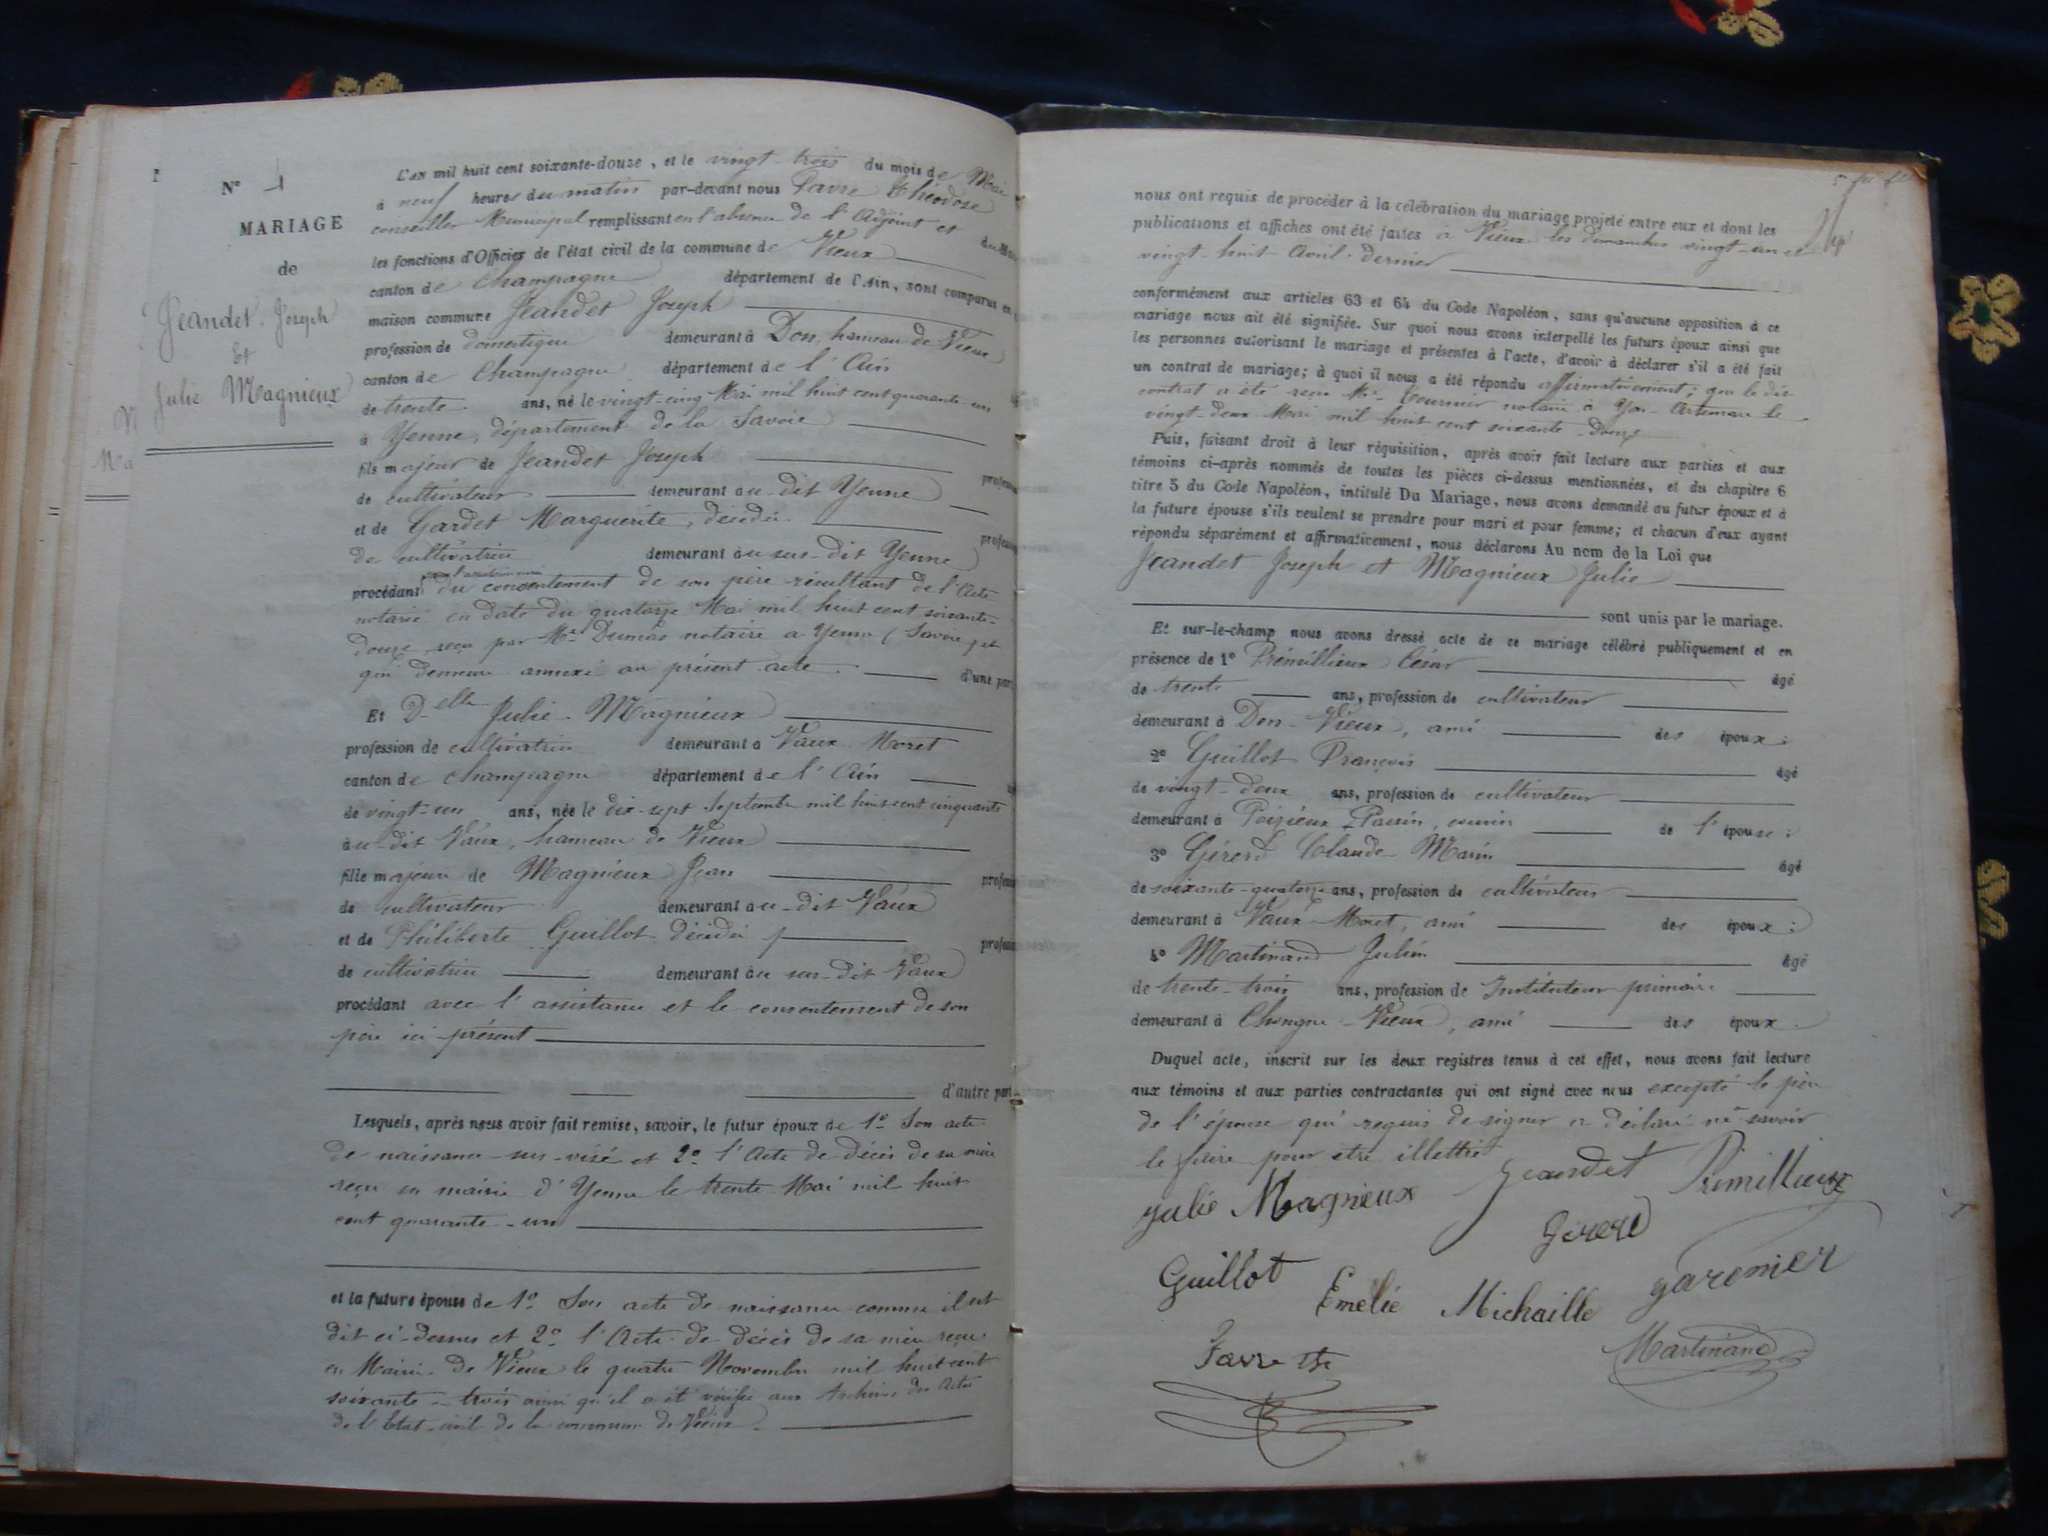 N° 4
MARIAGE
de
Jeandet Joseph
Et
Julie Magnieux
L'an mil huit cent soixante-douze, et le vingt-trois du mois de Mai
à neuf heures du matin par-devant nous Favre Théodose
conseiller Municipal remplissant en l'absence de l'Adjoint et du Maire
les fonctions d'Officier de l'état civil de la commune de Vieux
canton de Champagne département de l'Ain, sont comparus en
maison commune Jeandet Joseph
profession de domestique demeurant à Don, hameau de Vieux
canton de Champagne département de l'Ain
de trente ans, né le vingt-cinq Mai mil huit cent quarante-un
à Yenne, département de la Savoie
fils majeur de Jeandet Joseph
de cultivateur demeurant au-dit Yenne
et de Gardet Marguerite, décédée
de cultivatrice demeurant au sus-dit Yenne
procédant du consentement de son père résultant de l'Acte
notarié en date du quatorze Mai mil huit cent soixante-
douze reçu par Me Dumas notaire a Yenne (Savoie) et
qui demeure annexé au présent acte d'une part
Et Delle Julie Magnieux
profession de cultivatrice demeurant à Vaux-Moret
canton de Champagne département de l'Ain
de vingt-un ans, née le dix-sept Septembre mil huit cent cinquante
au-dit Vaux, hameau de Vieux
fille majeure de Magnieux Jean
de cultivateur demeurant au-dit Vaux
et de Philiberte Guillot décédée
de cultivatrice demeurant au sus-dit Vaux
procédant avec l'assistance et le consentement de son
père ici présent
d'autre part
Lesquels, après nous avoir fait remise, savoir, le futur époux de 1° Son acte
de naissance sus-visé et 2° l'Acte de décès de sa mère
reçu en mairie d'Yenne le trente Mai mil huit
cent quarante-un
et la future épouse de 1° Son acte de naissance comme il est
dit ci-dessus et 2° l'Acte de décès de sa mère reçu
en Mairie de Vieux le quatre Novembre mil huit cent
soixante-trois ainsi qu'il a été vérifié aux Archives des Actes
de l'Etat-civil de la commune de Vieux
nous ont requis de procéder à la célébration du mariage projeté entre eux et dont les
publications et affiches ont été faites à Vieux les dimanches vingt-un et
vingt-huit Avril dernier
conformément aux articles 63 et 64 du Code Napoléon, sans qu'aucune opposition à ce
mariage nous ait été signifiée. Sur quoi nous avons interpellé les futurs époux ainsi que
les personnes autorisant le mariage et présentes à l'acte, d'avoir à déclarer s'il a été fait
un contrat de mariage; à quoi il nous a été répondu affirmativement; que le dit
contrat a été reçu Me Tournier notaire à Yon-Artemare le
vingt-deux Mai mil huit cent soixante-douze
Puis, faisant droit à leur réquisition, après avoir fait lecture aux parties et aux
témoins ci-après nommés de toutes les pièces ci-dessus mentionnées, et du chapitre 6
titre 5 du Code Napoléon, intitulé Du Mariage, nous avons demandé au futur époux et à
la future épouse s'ils veulent se prendre pour mari et pour femme; et chacun d'eux ayant
répondu séparément et affirmativement, nous déclarons Au nom de la Loi que
Jeandet Joseph et Magnieux Julie
sont unis par le mariage.
Et sur-le-champ nous avons dressé acte de ce mariage célébré publiquement et en
présence de 1° Prémillieux César âgé
de trente ans, profession de cultivateur
demeurant à Don-Vieux, ami des époux;
2° Guillot François âgé
de vingt-deux ans, profession de cultivateur
demeurant à Poizieux-Passin, cousin de l'épouse;
3° Gérerd Claude Marin âgé
de soixante-quatorze ans, profession de cultivateur
demeurant à Vaux-Moret, ami des époux;
4° Martinand Julien âgé
de trente-trois ans, profession de Instituteur primaire
demeurant à Chongne-Vieux, ami des époux.
Duquel acte, inscrit sur les deux registres tenus à cet effet, nous avons fait lecture
aux témoins et aux parties contractantes qui ont signé avec nous excepté le père
de l'épouse qui requis de signer a déclaré ne savoir
le faire pour être illettré
Julie Magnieux Jeandet Primillieux
Gérerd
Guillot Emélie Michaille garonier
Favre The Martinand